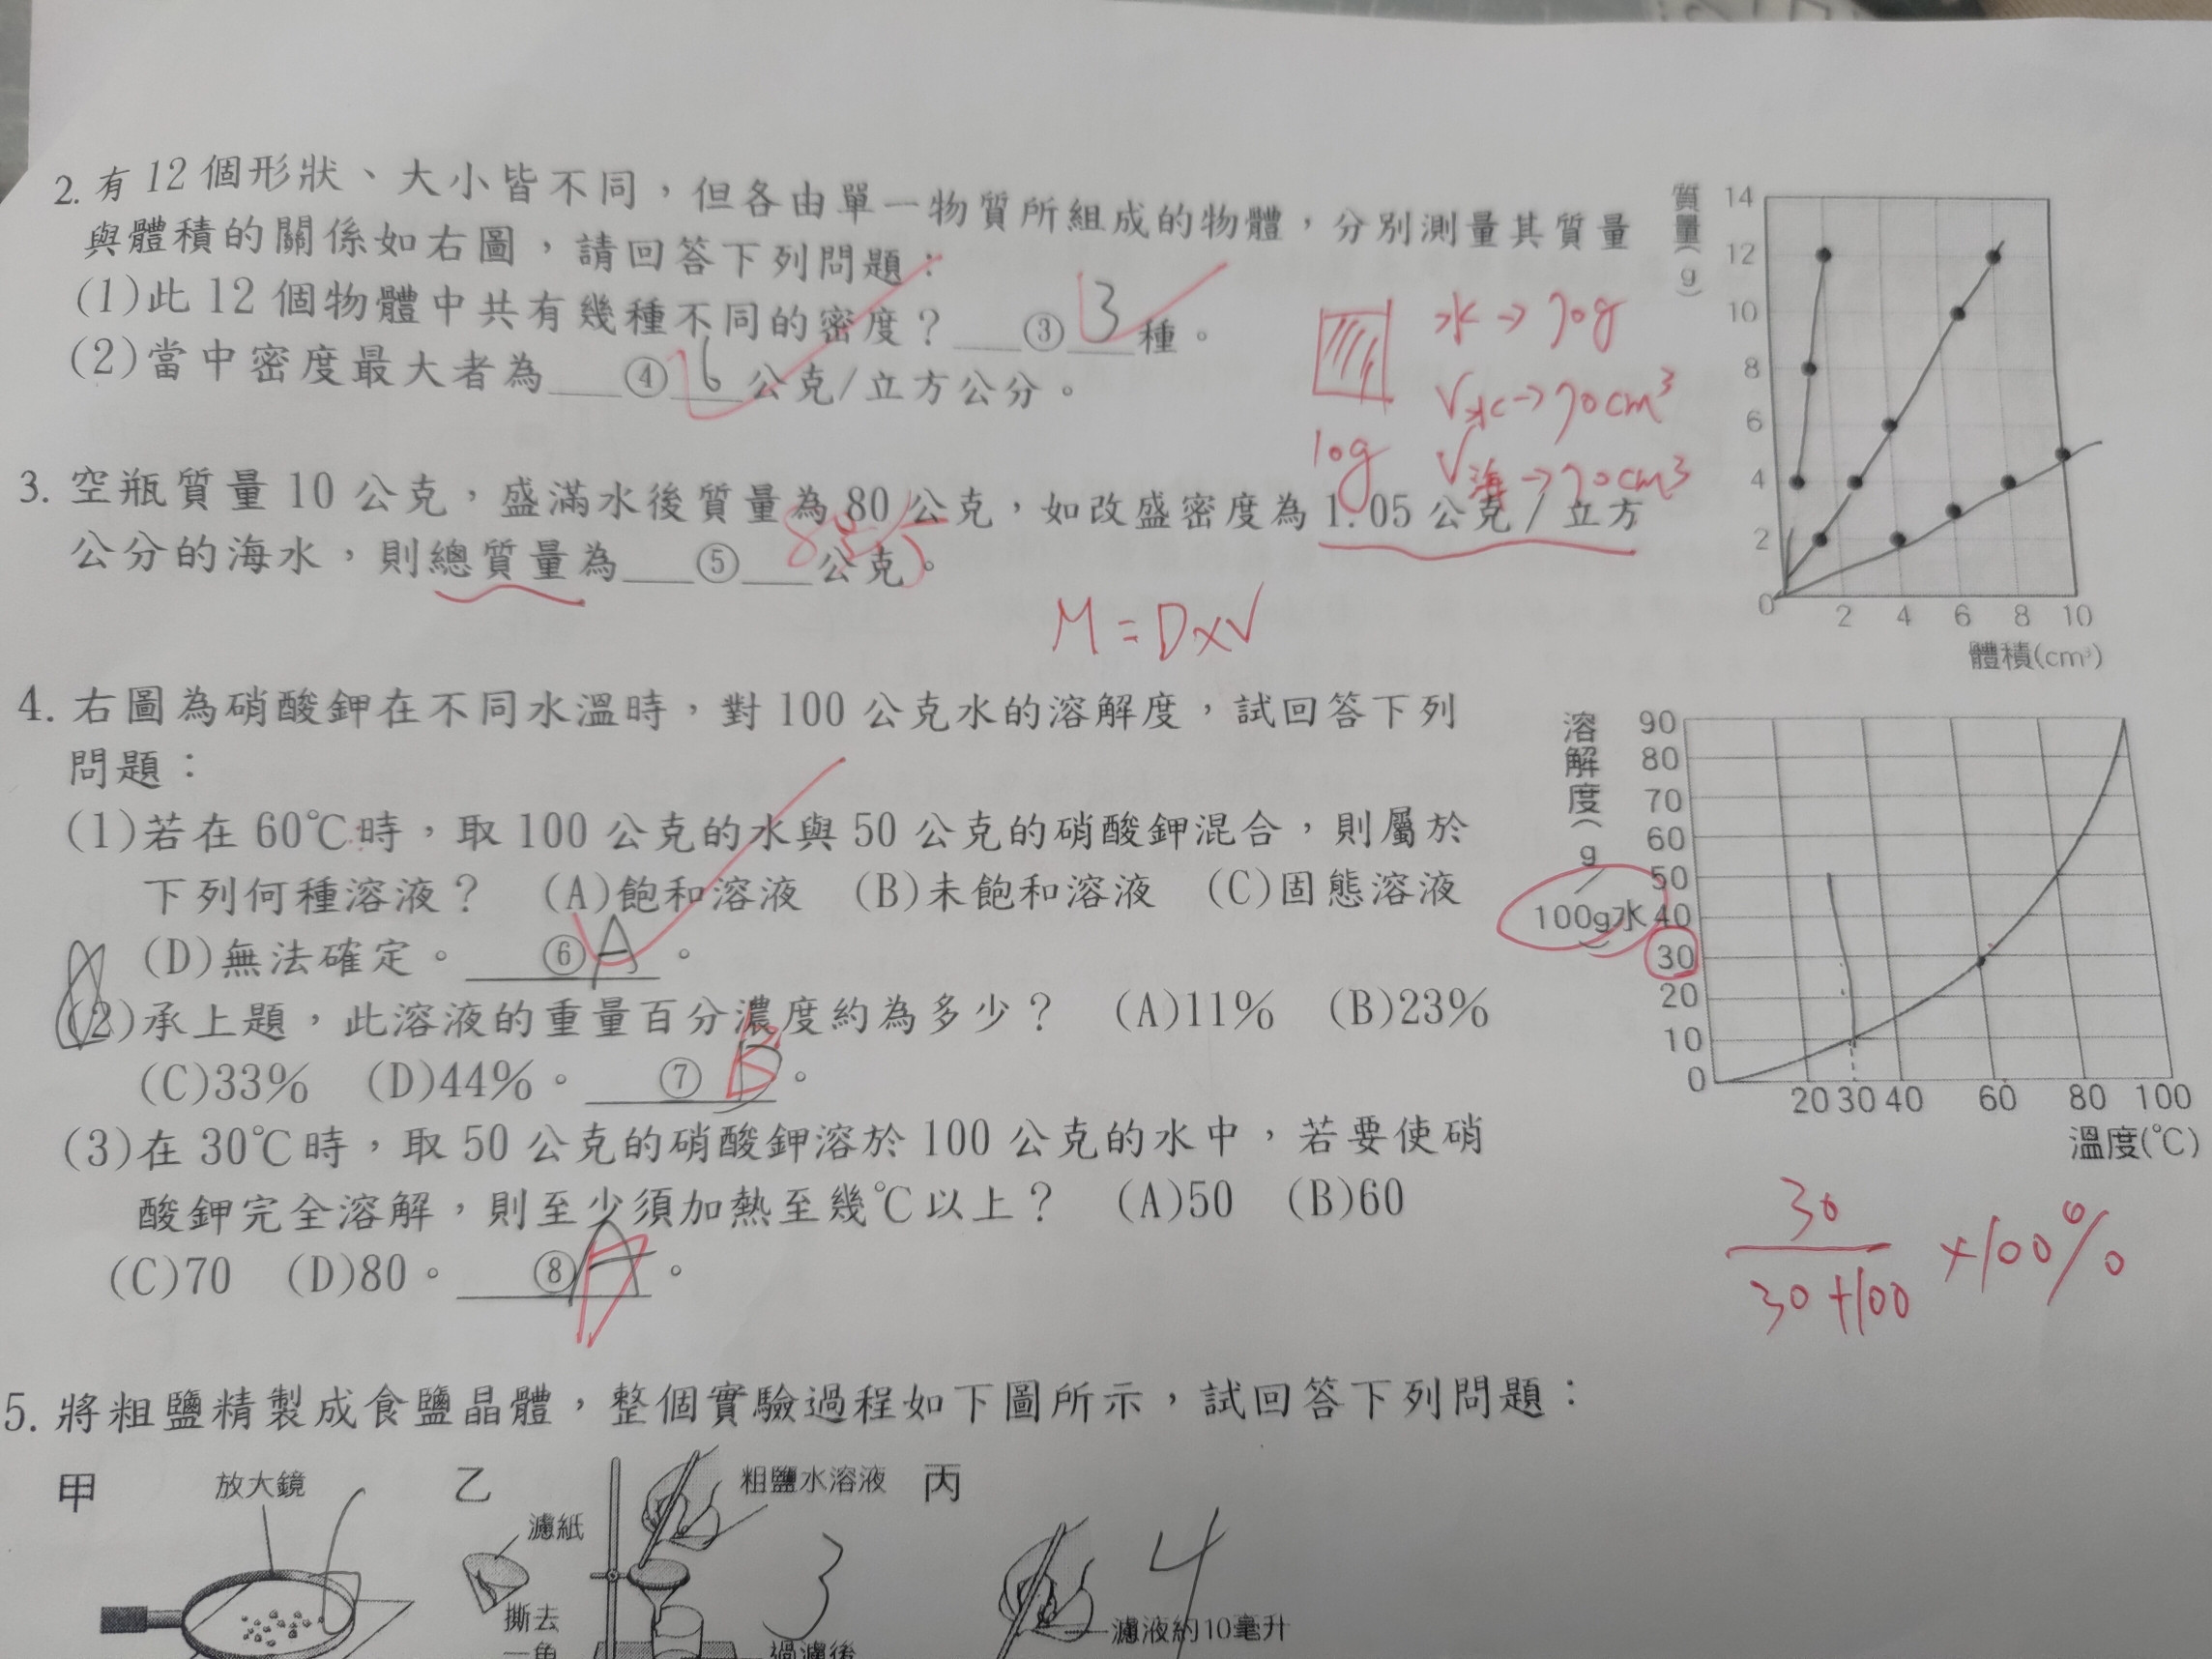 2. 有12個形狀、大小皆不同，但各由單一物質所組成的物體，分別測量其質量
與體積的關係如右圖，請回答下列問題：
(1)此12個物體中共有幾種不同的密度？ ③ 3 種。
(2)當中密度最大者為 ④ 6 公克/立方公分。
質量(g)
14
12
10
8
6
4
2
0
2 4 6 8 10
體積(cm³)
水→70g
V水→70cm³
10g V海→70cm³
3. 空瓶質量10公克，盛滿水後質量為80公克，如改盛密度為1.05公克/立方
公分的海水，則總質量為 ⑤ 公克。
M=D×V
4. 右圖為硝酸鉀在不同水溫時，對100公克水的溶解度，試回答下列
問題：
(1)若在60℃時，取100公克的水與50公克的硝酸鉀混合，則屬於
下列何種溶液？ (A)飽和溶液 (B)未飽和溶液 (C)固態溶液
(D)無法確定。 ⑥ A 。
(2)承上題，此溶液的重量百分濃度約為多少？ (A)11% (B)23%
(C)33% (D)44%。 ⑦ B 。
(3)在30℃時，取50公克的硝酸鉀溶於100公克的水中，若要使硝
酸鉀完全溶解，則至少須加熱至幾℃以上？ (A)50 (B)60
(C)70 (D)80。 ⑧ A 。
溶解度(g/100g水)
90
80
70
60
50
40
30
20
10
0
20 30 40 60 80 100
溫度(℃)
30
30+100
×100%
5. 將粗鹽精製成食鹽晶體，整個實驗過程如下圖所示，試回答下列問題：
甲
放大鏡
乙
濾紙
撕去
一角
粗鹽水溶液
3
過濾後
丙
4
濾液約10毫升